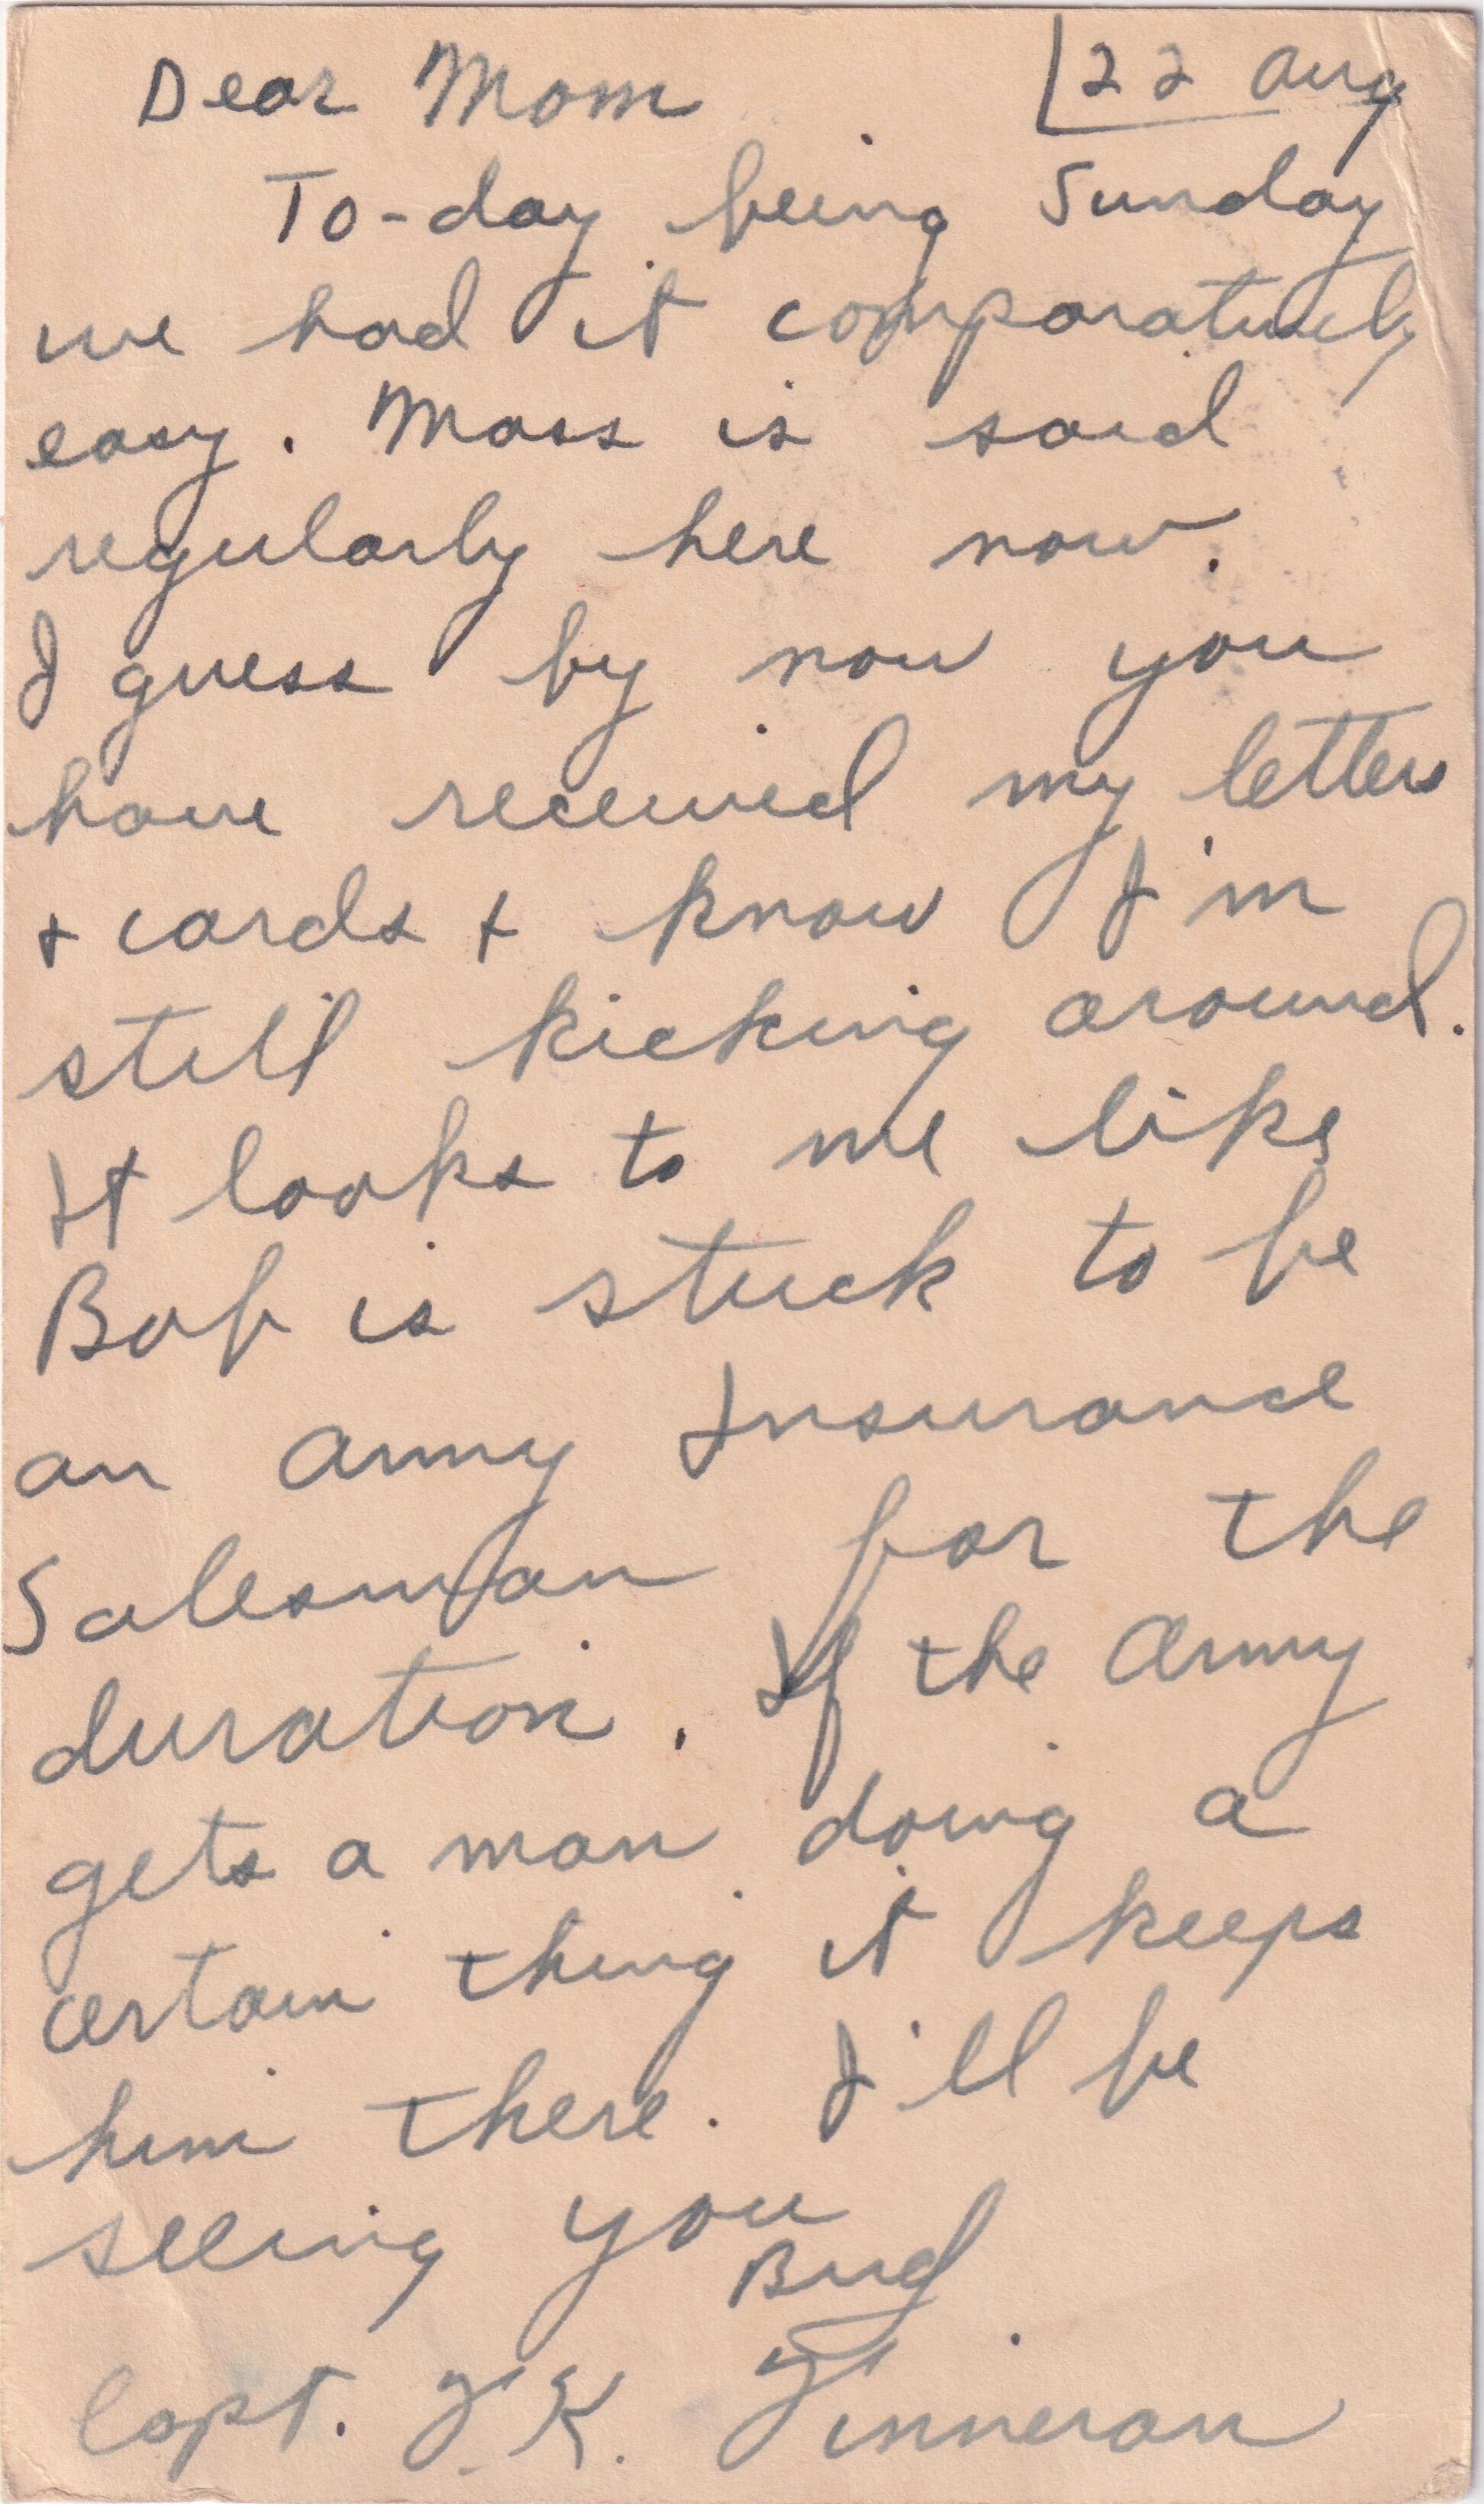 22 Aug
Dear Mom
To-day being Sunday
we had it comparatively
easy. Mass is said
regularly here now.
I guess by now you
have received my letters
+ cards + know I'm
still kicking around.
It looks to me like
Bob is stuck to be
an Army Insurance
Salesman for the
duration. If the Army
gets a man doing a
certain thing it keeps
him there. I'll be
seeing you
Bud
Capt. J. K. Finneran